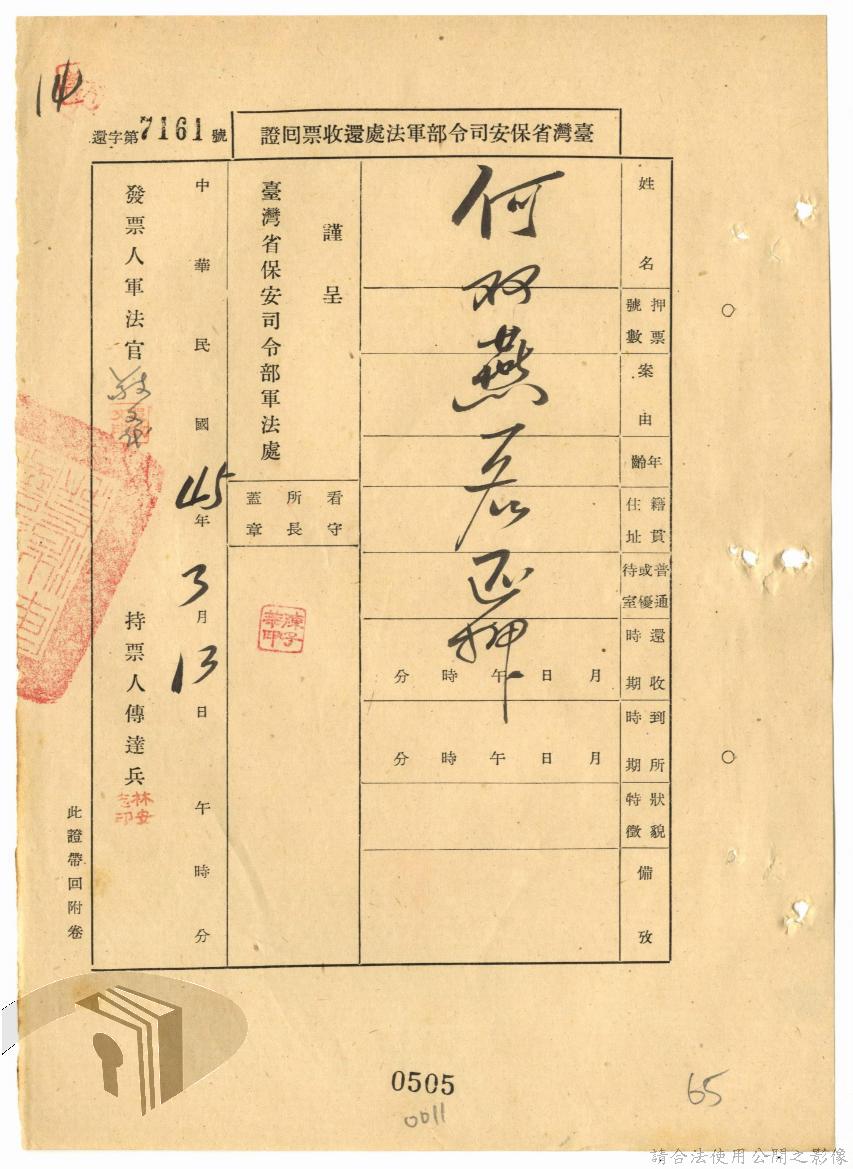 14
臺灣省保安司令部軍法處還收票回證
還字第7161號
姓名
押票號數
案由
年齡
籍貫住址
普通或優待室
還收時期
月日午時分
到所時期
月日午時分
狀貌特徵
備攷
何双燕
还押
謹呈
臺灣省保安司令部軍法處
看守所長蓋章
中華民國45年3月13日午時分
發票人軍法官
持票人傳達兵
此證帶回附卷
0505
0011
65
請合法使用公開之影像